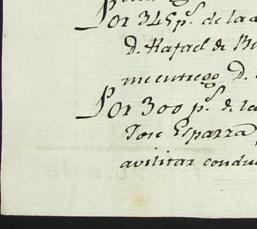 Por 345 p.s de la
D. Rafael de
me entrego D.
Por 300 p.s de la
Jose Esparza
avilitar condu